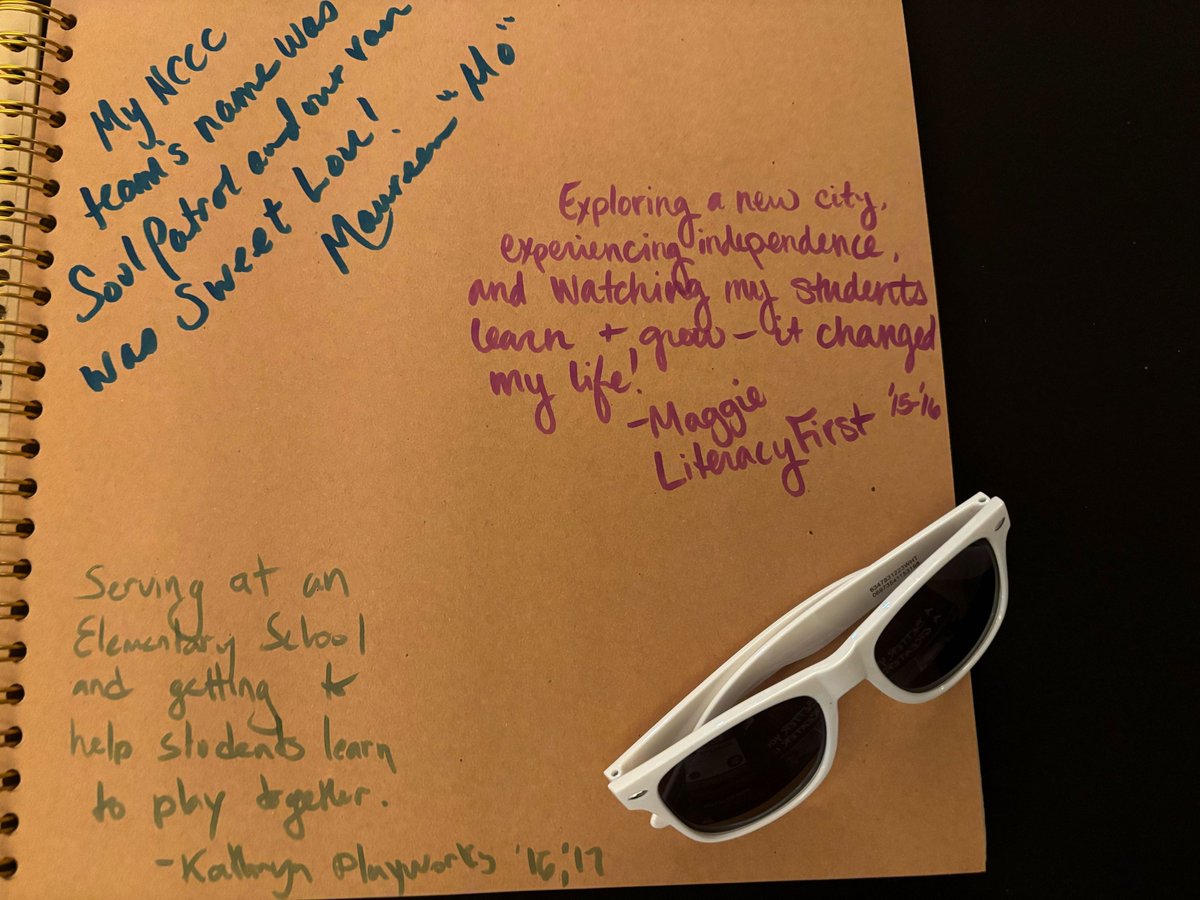 My NCCC
team's name was
Soul Patrol and our van
was Sweet Lou!
Maureen "Mo"
Exploring a new city,
experiencing independence,
and watching my students
learn + grow – it changed
my life!
-Maggie
LiteracyFirst '15-'16
Serving at an
Elementary School
and getting to
help students learn
to play together.
-Kathryn Playworks '16,'17